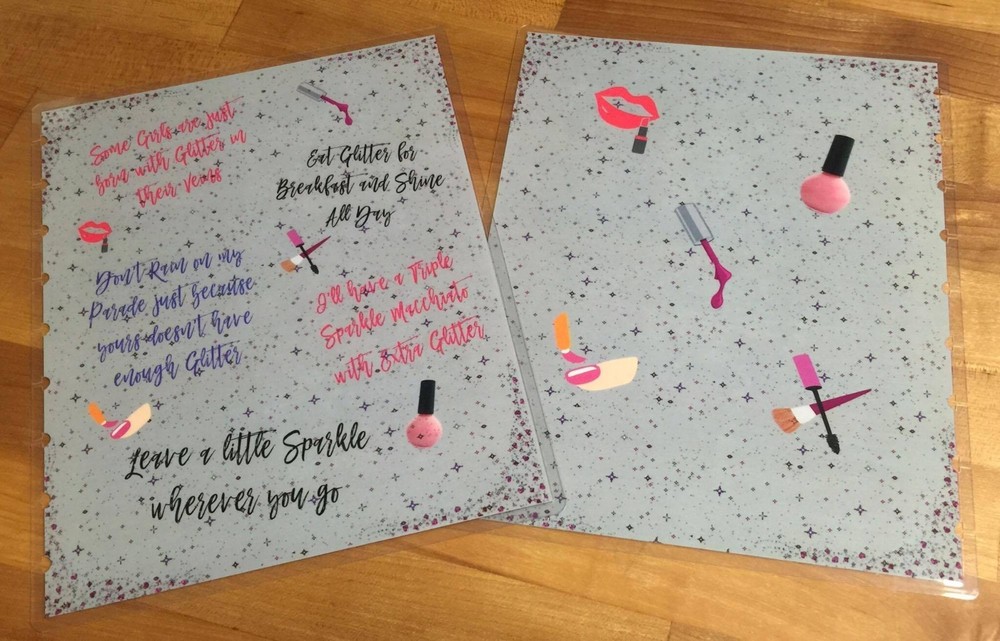 Some Girls are just
born with Glitter in
their Veins
Eat Glitter for
Breakfast and Shine
All Day
Don't Rain on my
Parade just because
yours doesn't have
enough Glitter
I'll have a Triple
Sparkle Macchiato
with Extra Glitter
Leave a little Sparkle
wherever you go